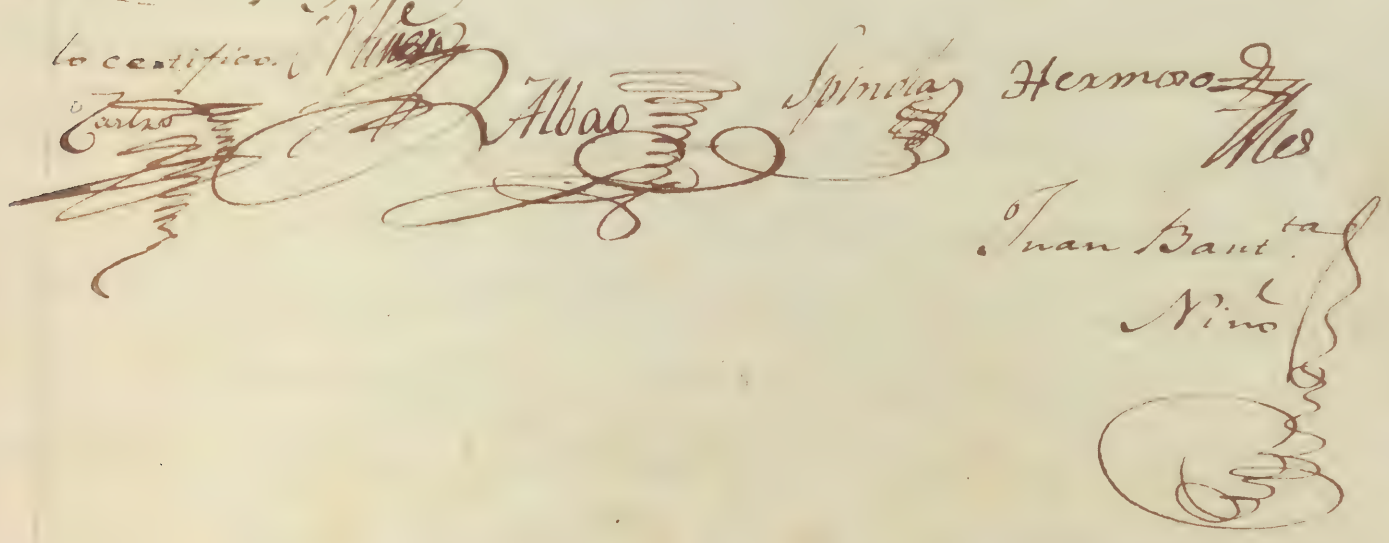 lo certifico.
Castro
Albao
Spinola
Hermoso
Juan Baut.ta
Nino